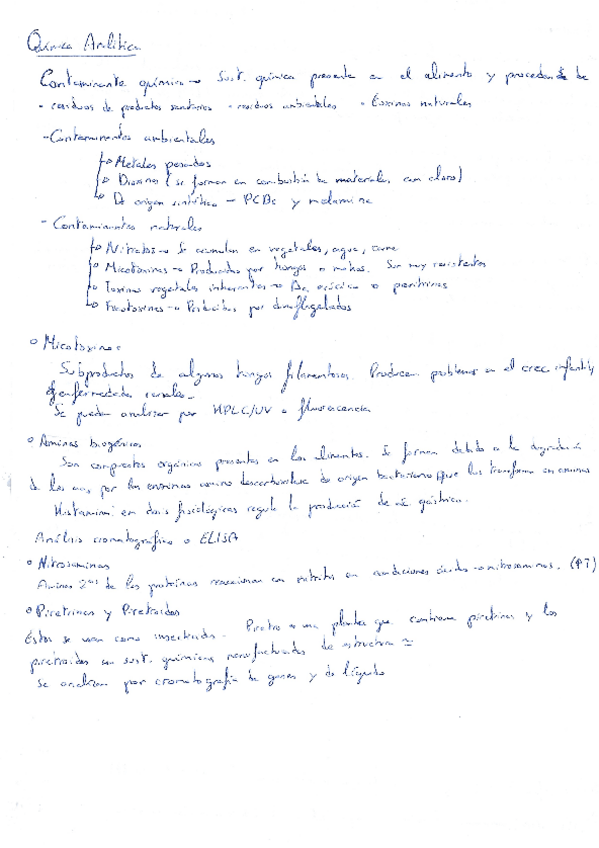 Química Analítica
Contaminante químico → Sust. química presente en el alimento y procedente de
- residuos de productos sanitarios - residuos ambientales - Toxinas naturales
- Contaminantes ambientales
→ Metales pesados
→ Dioxinas (se forman en combustión de materiales con cloro)
→ De origen sintético - PCBs y melamina
- Contaminantes naturales
→ Nitratos → Se acumulan en vegetales, agua, carne
→ Micotoxinas → Producidas por hongos o mohos. Son muy resistentes
→ Toxinas vegetales inherentes →
→ Ficotoxinas → Producidas por dinoflagelados
o Micotoxinas:
Subproductos de algunos hongos filamentosos. Producen problemas en el crec. infantil y
enfermedades renales.
Se pueden analizar por HPLC/UV o fluorescencia
o Aminas biogénicas
Son compuestos orgánicos presentes en los alimentos. Se forman debido a la degradación
de los aas por las enzimas descarboxilasa de origen bacteriano que los transforma en aminas
Histamina: en dosis fisiológicas regula la producción de ác. gástrico.
Análisis cromatográfico o ELISA
o Nitrosaminas
Aminas 2rias de las proteínas reaccionan con nitritos en condiciones ácidas → nitrosaminas. (P7)
o Piretrinas y Piretroides
Estos se usan como insecticidas. Piretro es una planta que contiene piretrinas y los
piretroides son sust. químicas manufacturadas de estructura ≈
Se analizan por cromatografía de gases y de líquidos